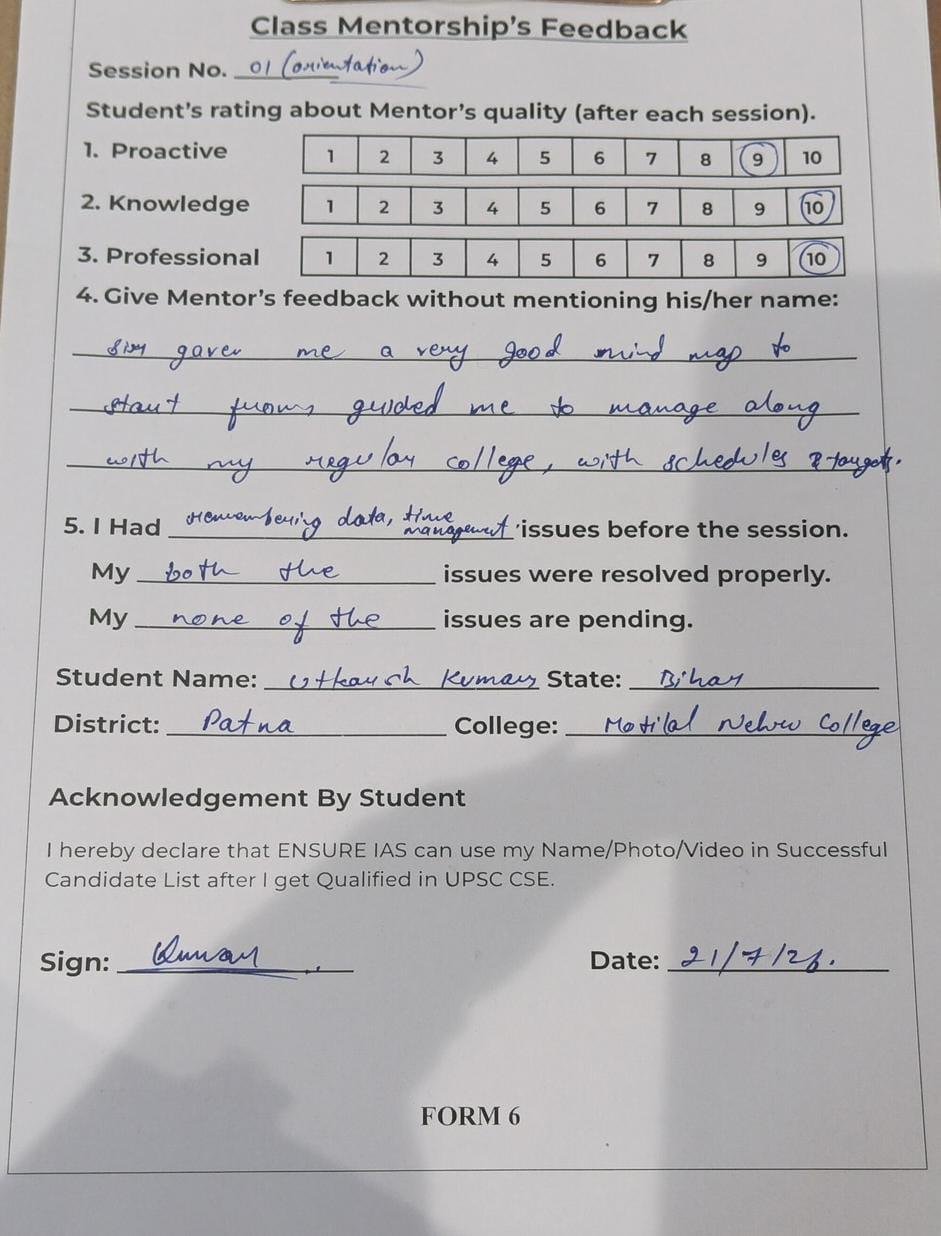 Class Mentorship's Feedback
Session No. 01 (orientation)
Student's rating about Mentor's quality (after each session).
1. Proactive 1 2 3 4 5 6 7 8 9 10
2. Knowledge 1 2 3 4 5 6 7 8 9 10
3. Professional 1 2 3 4 5 6 7 8 9 10
4. Give Mentor's feedback without mentioning his/her name:
me a very good mind map to
guided me to manage along
with my regular college, with schedules & targets.
5. I Had remembering data, time management issues before the session.
My both the issues were resolved properly.
My none of the issues are pending.
Student Name: Utkarsh Kumar State: Bihar
District: Patna College: Motilal Nehru College
Acknowledgement By Student
I hereby declare that ENSURE IAS can use my Name/Photo/Video in Successful
Candidate List after I get Qualified in UPSC CSE.
Sign: Kumar Date: 21/7/
FORM 6